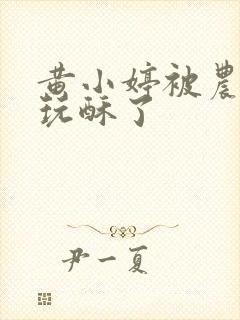 黄小婷被農
玩酥了
尹一夏